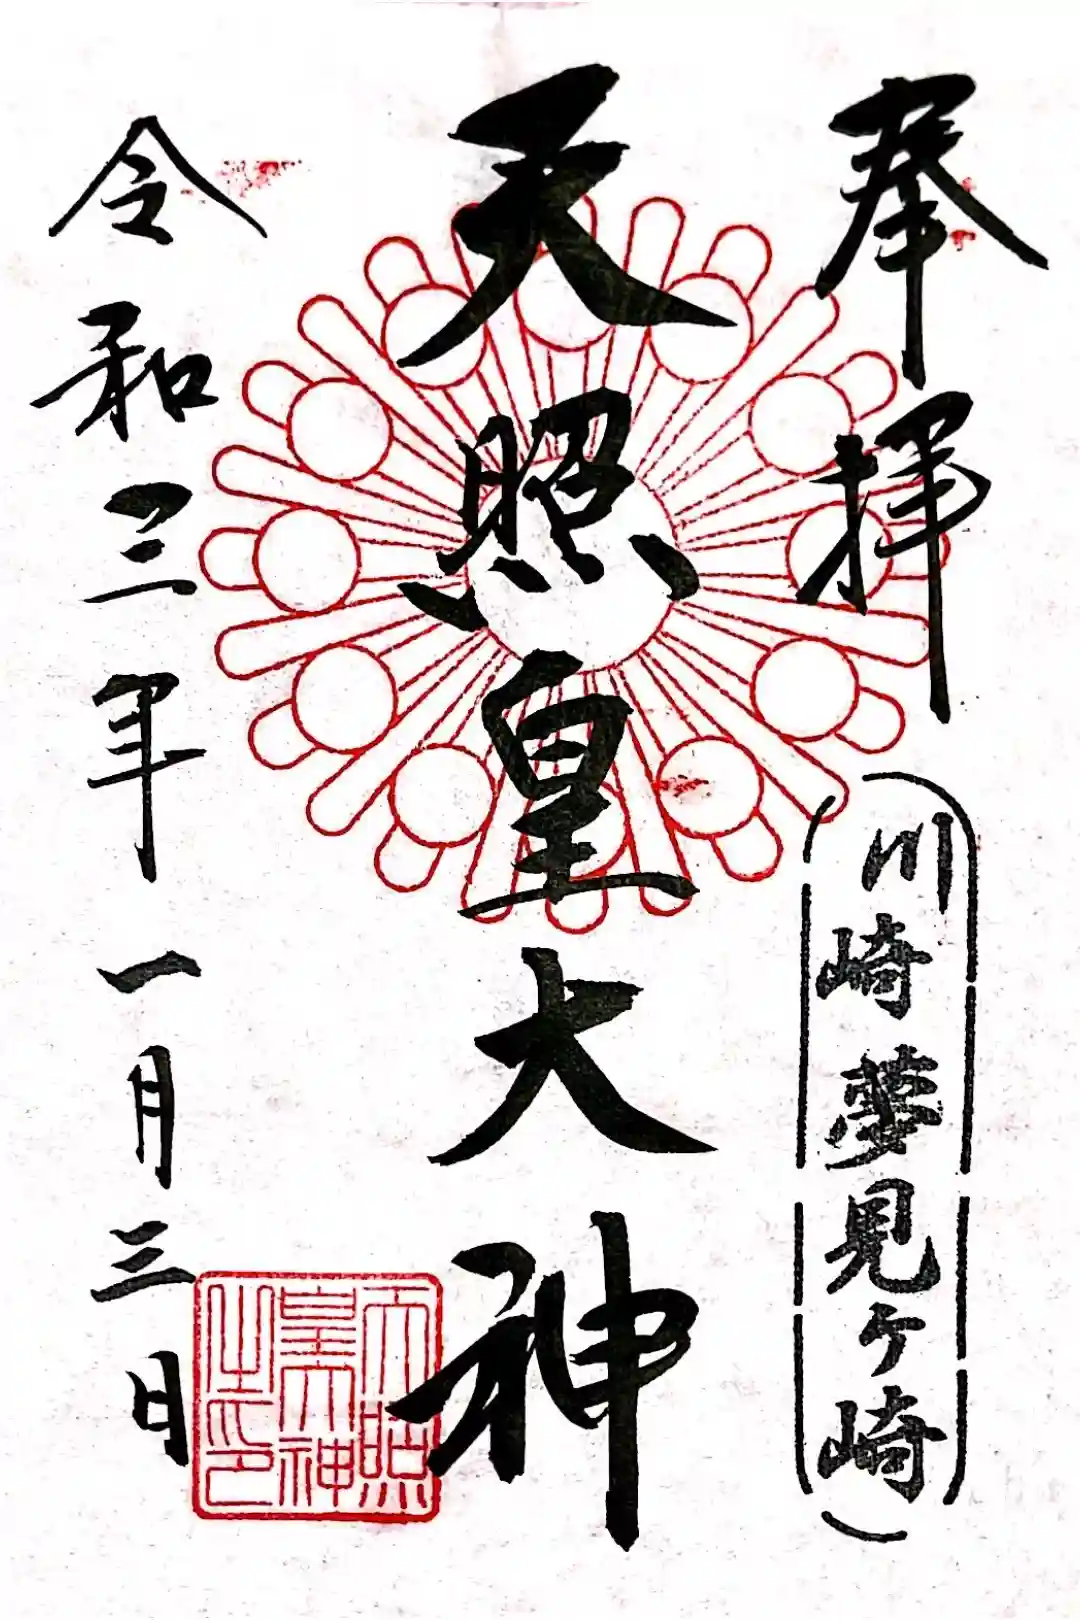 奉拝
川崎夢見ケ崎
天照皇大神
令和三年一月三日
天照
皇大神
之印